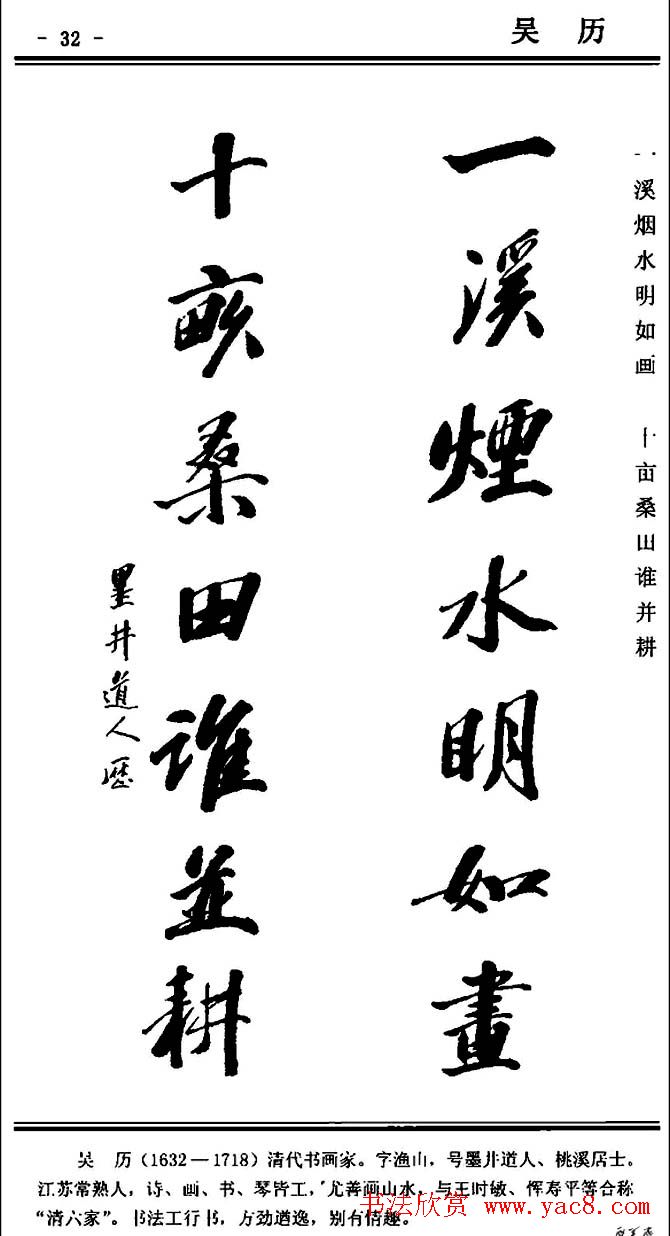 - 32 -
吴 历
一溪烟水明如画 十亩桑田谁并耕
一溪煙水明如畫
十畝桑田誰並耕
墨井道人歷
吴 历(1632—1718)清代书画家。字渔山,号墨井道人、桃溪居士。
江苏常熟人,诗、画、书、琴皆工,尤善画山水,与王时敏、恽寿平等合称
“清六家”。书法工行书,方劲遒逸,别有情趣。
书法欣赏 www.yac8.com